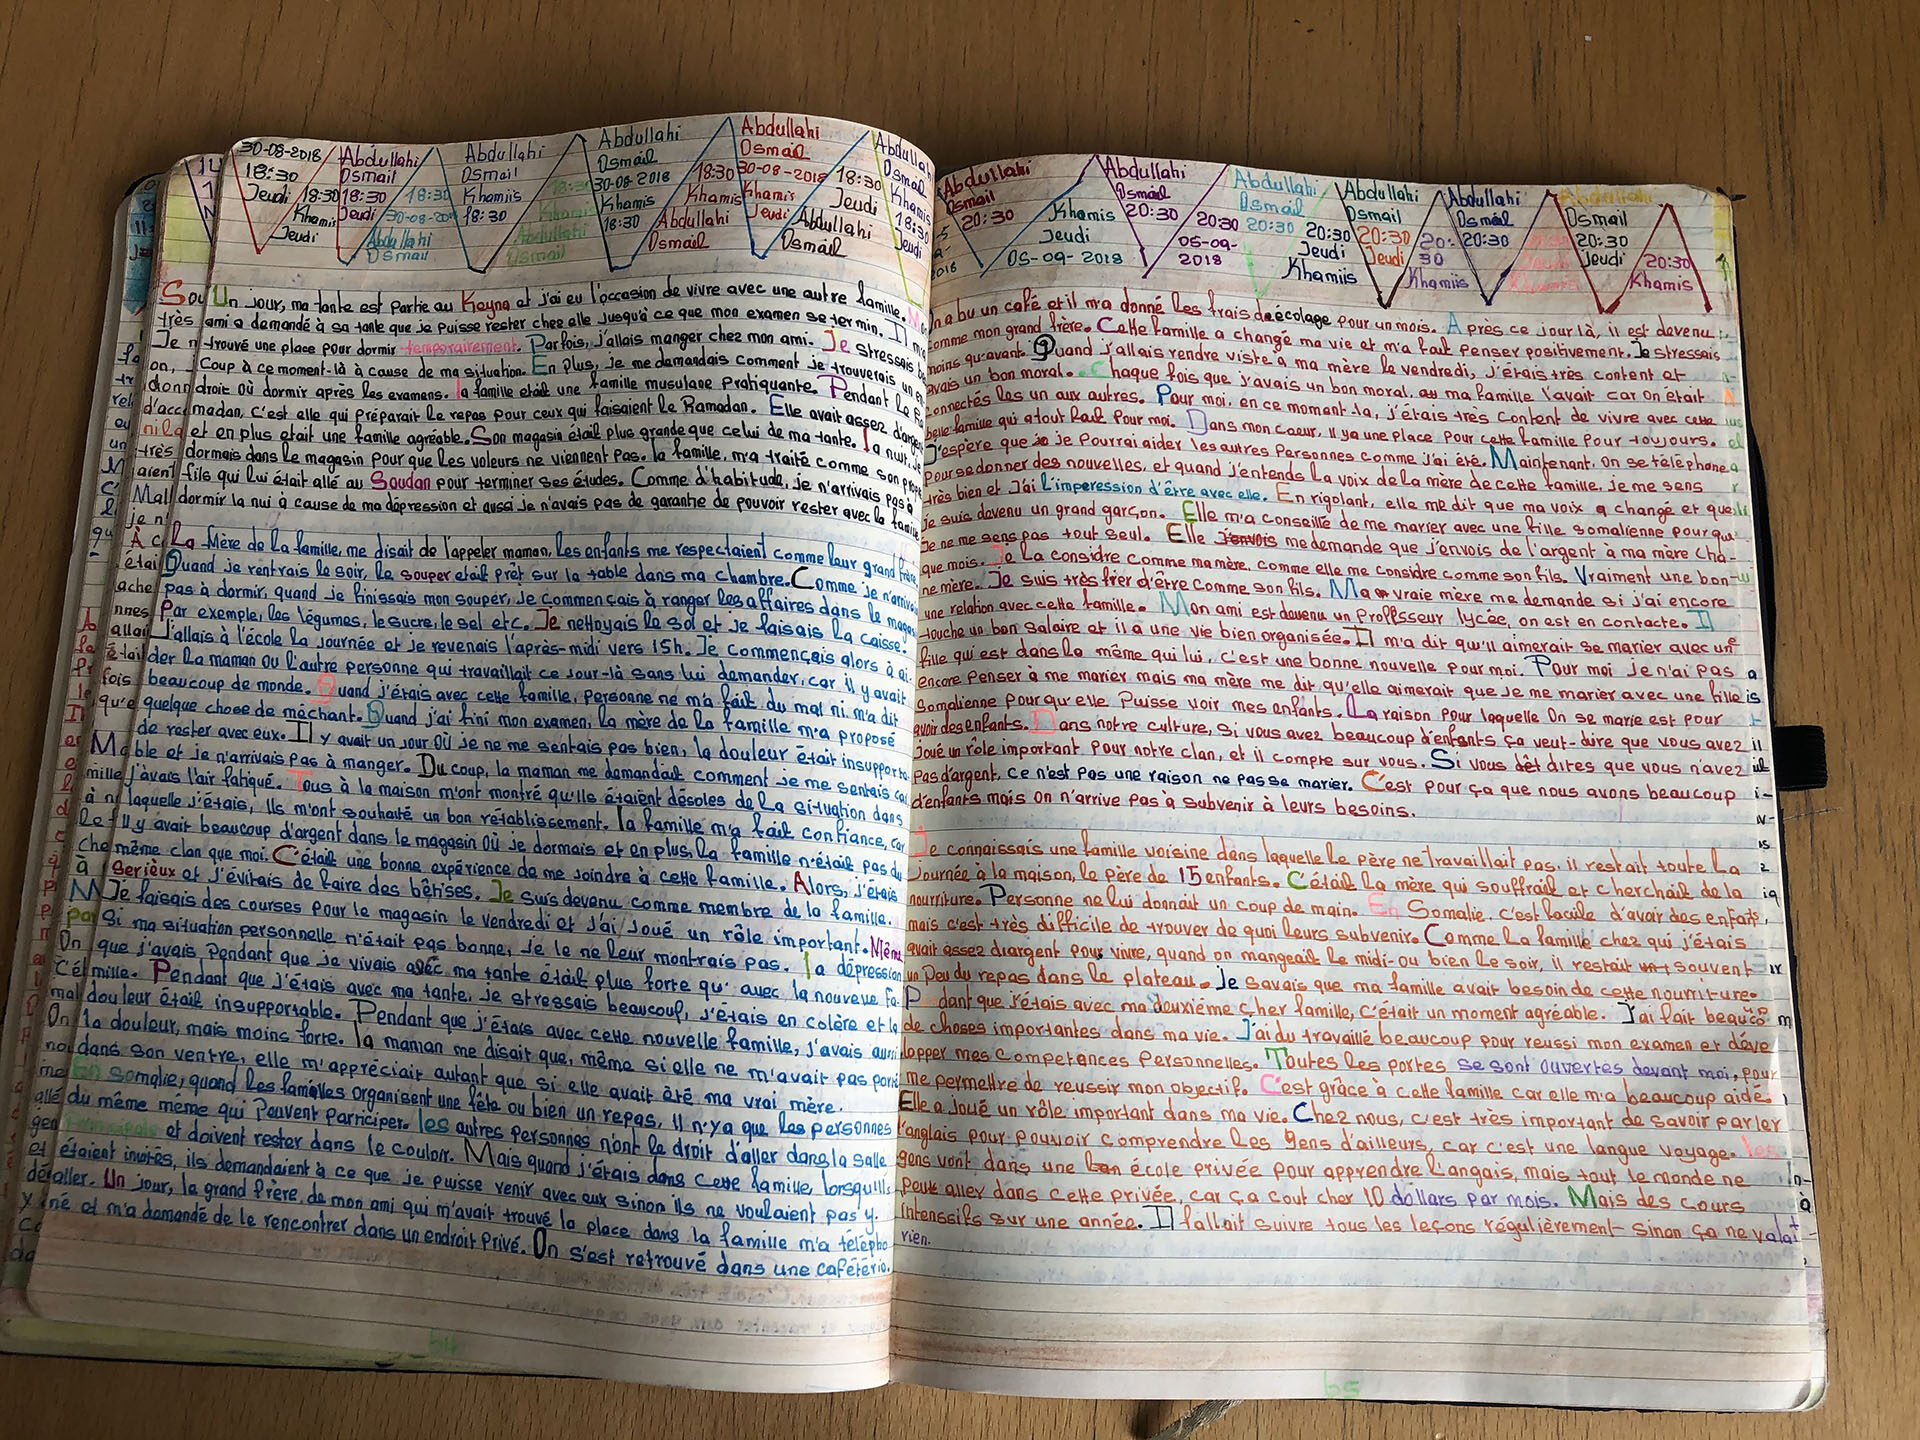 30-08-2018
18:30
Jeudi
18:30
Khamis
Jeudi
Abdullahi
Osmail
18:30
Jeudi
18:30
30-08-2018
Abdullahi
Osmail
Abdullahi
Osmail
Khamiis
18:30
18:30
Khamis
Abdullahi
Osmail
Abdullahi
Osmail
30-08-2018
Khamis
18:30
18:30
Khamis
Abdullahi
Osmail
Abdullahi
Osmail
30-08-2018
Khamis
Jeudi
18:30
Jeudi
Abdullahi
Osmail
Abdullahi
Osmail
Khamis
18:30
Jeudi
Un jour, ma tante est partie au Keyna et j'ai eu l'occasion de vivre avec une autre famille.
ami a demandé à sa tante que je puisse rester chez elle jusqu'à ce que mon examen se termin. Il m'a
trouvé une place pour dormir temporairement. Parfois, j'allais manger chez mon ami. Je stressais
Coup à ce moment-là à cause de ma situation. En plus, je me demandais comment je trouverais un en
droit où dormir après les examens. la famille etait une famille musulane Pratiquante. Pendant le Ra
madan, c'est elle qui préparait le repas pour ceux qui faisaient le Ramadan. Elle avait assez d'argent
et en plus etait une famille agréable. Son magasin était plus grande que celui de ma tante. la nuit, je
dormais dans le magasin pour que les voleurs ne viennent pas. la famille, m'a traité comme son propre
fils qui lui était allé au Soudan pour terminer ses études. Comme d'habitude, je n'arrivais pas à
dormir la nui à cause de ma dépression et aussi je n'avais pas de garantie de pouvoir rester avec la famille
La Mère de la famille, me disait de l'appeler maman, les enfants me respectaient comme leur grand frère.
Quand je rentrais le soir, le souper etait prêt sur la table dans ma chambre. Comme je n'arrivais
pas à dormir, quand je finissais mon souper, je commençais à ranger les affaires dans le magas
Par exemple, les légumes, le sucre, le sel etc. Je nettoyais le sol et je faisais la caisse.
J'allais à l'école la journée et je revenais l'après-midi vers 15h. Je commençais alors à ai-
der la maman ou l'autre personne qui travaillait ce jour-là sans lui demander, car il y avait
beaucoup de monde. Quand j'étais avec cette famille, personne ne m'a fait du mal ni m'a dit
quelque chose de méchant. Quand j'ai fini mon examen, la mère de la famille m'a proposé
de rester avec eux. Il y avait un jour où je ne me sentais pas bien, la douleur était insupporta
ble et je n'arrivais pas à manger. Du coup, la maman me demandait comment je me sentais car
j'avais l'air fatigué. Tous à la maison m'ont montré qu'ils étaient désoles de la situation dans
laquelle j'étais, Ils m'ont souhaité un bon rétablissement. la famille m'a fait confiance, car
Il y avait beaucoup d'argent dans le magasin où je dormais et en plus, la famille n'était pas du
même clan que moi. C'était une bonne expérience de me joindre à cette famille. Alors, j'étais
serieux et j'évitais de faire des bêtises. Je suis devenu comme membre de la famille.
Je faisais des courses pour le magasin le vendredi et j'ai joué un rôle important. Même
Si ma situation personnelle n'était pas bonne, je le ne leur montrais pas. la dépression
que j'avais, pendant que je vivais avec ma tante était plus forte qu'avec la nouvelle fa-
mille. Pendant que j'étais avec ma tante, je stressais beaucoup, j'étais en colère et la
douleur était insupportable. Pendant que j'étais avec cette nouvelle famille, j'avais aussi
la douleur, mais moins forte. la maman me disait que, même si elle ne m'avait pas porté
dans son ventre, elle m'appréciait autant que si elle avait été ma vrai mère.
En somalie, quand les familles organisent une fête ou bien un repas, Il n'ya que les personnes
du même même qui peuvent participer. les autres personnes n'ont le droit d'aller dans la salle
principale et doivent rester dans le couloir. Mais quand j'étais dans cette famille, lorsqu'ils
étaient invités, ils demandaient à ce que je puisse venir avec eux sinon ils ne voulaient pas y.
aller. Un jour, la grand frère de mon ami qui m'avait trouvé la place dans la famille m'a télépho
né et m'a demandé de le rencontrer dans un endroit privé. On s'est retrouvé dans une cafétéria.
64
Abdullahi
Osmail
20:30
Khamis
Jeudi
05-09-2018
Abdullahi
Osmail
20:30
20:30
05-09-
2018
Abdullahi
Osmail
20:30
20:30
Jeudi
Khamiis
Abdullahi
Osmail
20:30
Jeudi
20:
30
Khamiis
Abdullahi
Osmail
20:30
Abdullahi
Osmail
20:30
Jeudi
20:30
Khamis
On a bu un café et il m'a donné les frais d'écolage pour un mois. Après ce jour là, il est devenu
comme mon grand frère. Cette famille a changé ma vie et m'a fait penser positivement. Je stressais
moins qu'avant. Quand j'allais rendre visite à ma mère le vendredi, j'étais très content et
avais un bon moral. Chaque fois que j'avais un bon moral, ma famille l'avait car on était
connectés les un aux autres. Pour moi, en ce moment-là, j'étais très content de vivre avec cette
belle famille qui a tout fait pour moi. Dans mon coeur, Il ya une place pour cette famille pour toujours.
J'espère que je pourrai aider les autres personnes comme j'ai été. Maintenant, on se téléphone
pour se donner des nouvelles, et quand j'entends la voix de la mère de cette famille, je me sens
très bien et j'ai l'imperession d'être avec elle. En rigolant, elle me dit que ma voix a changé et que
je suis devenu un grand garçon. Elle m'a conseillé de me marier avec une fille somalienne pour que
je ne me sens pas tout seul. Elle j'envois me demande que j'envois de l'argent à ma mère cha-
que mois. Je la considre comme ma mère, comme elle me considre comme son fils. Vraiment une bon-
ne mère. Je suis très fier d'être comme son fils. Ma vraie mère me demande si j'ai encore
une relation avec cette famille. Mon ami est devenu un professeur lycée, on est en contacte. Il
touche un bon salaire et il a une vie bien organisée. Il m'a dit qu'il aimerait se marier avec une
fille qui est dans la même qui lui, c'est une bonne nouvelle pour moi. Pour moi je n'ai pas
encore penser à me marier mais ma mère me dit qu'elle aimerait que je me marier avec une fille
Somalienne pour qu'elle Puisse voir mes enfants. La raison pour laquelle On se marie est pour
avoir des enfants. Dans notre culture, si vous avez beaucoup d'enfants ça veut-dire que vous avez
joué un rôle important pour notre clan, et il compte sur vous. Si vous dites que vous n'avez
pas d'argent, ce n'est pas une raison ne pas se marier. C'est pour ça que nous avons beaucoup
d'enfants mais on n'arrive pas à subvenir à leurs besoins.
Je connaissais une famille voisine dans laquelle le père ne travaillait pas, il restait toute la
Journée à la maison, le père de 15 enfants. C'était la mère qui souffrait et cherchait de la
nourriture. Personne ne lui donnait un coup de main. En Somalie, c'est facile d'avoir des enfats,
mais c'est très difficile de trouver de quoi leurs subvenir. Comme la famille chez qui j'étais
avait assez d'argent pour vivre, quand on mangeait le midi-ou bien le soir, il restait souvent
un peu du repas dans le plateau. Je savais que ma famille avait besoin de cette nourriture.
P dant que j'étais avec ma deuxième cher famille, c'était un moment agréable. J'ai fait beaucop
de choses importantes dans ma vie. J'ai du travaillé beaucoup pour reussi mon examen et déve
lopper mes competances Personnelles. Toutes les portes se sont ouvertes devant moi, pour
me permettre de reussir mon objectif. C'est grâce à cette famille car elle m'a beaucoup aidé.
Elle a joué un rôle important dans ma vie. Chez nous, c'est très important de savoir parler
l'anglais pour pouvoir comprendre les gens d'ailleurs, car c'est une langue voyage. les
gens vont dans une école privée pour apprendre l'angais, mais tout le monde ne
peut aller dans cette privée, car ça cout cher 10 dollars par mois. Mais des cours
intenssifs sur une année. Il fallait suivre tous les leçons régulièrement sinon ça ne valait
rien.
65